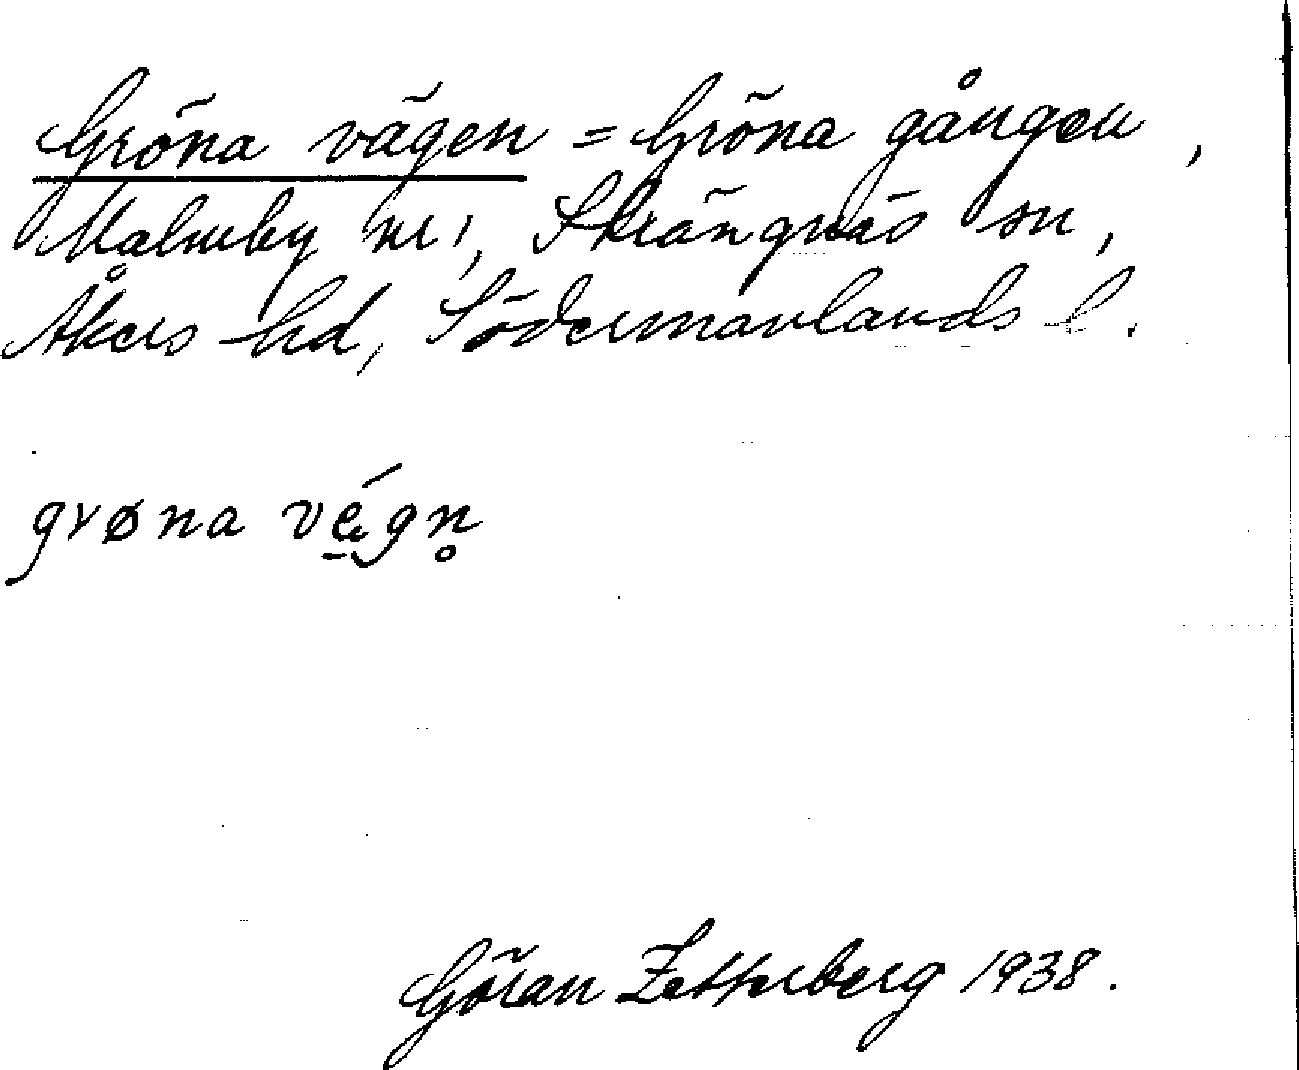 Gröna vägen = Gröna gången,
Malmby nr 1, Strängnäs sn,
Åkers hd, Södermanlands l.
grøna vé̠gn̥
Göran Zetterberg 1938.